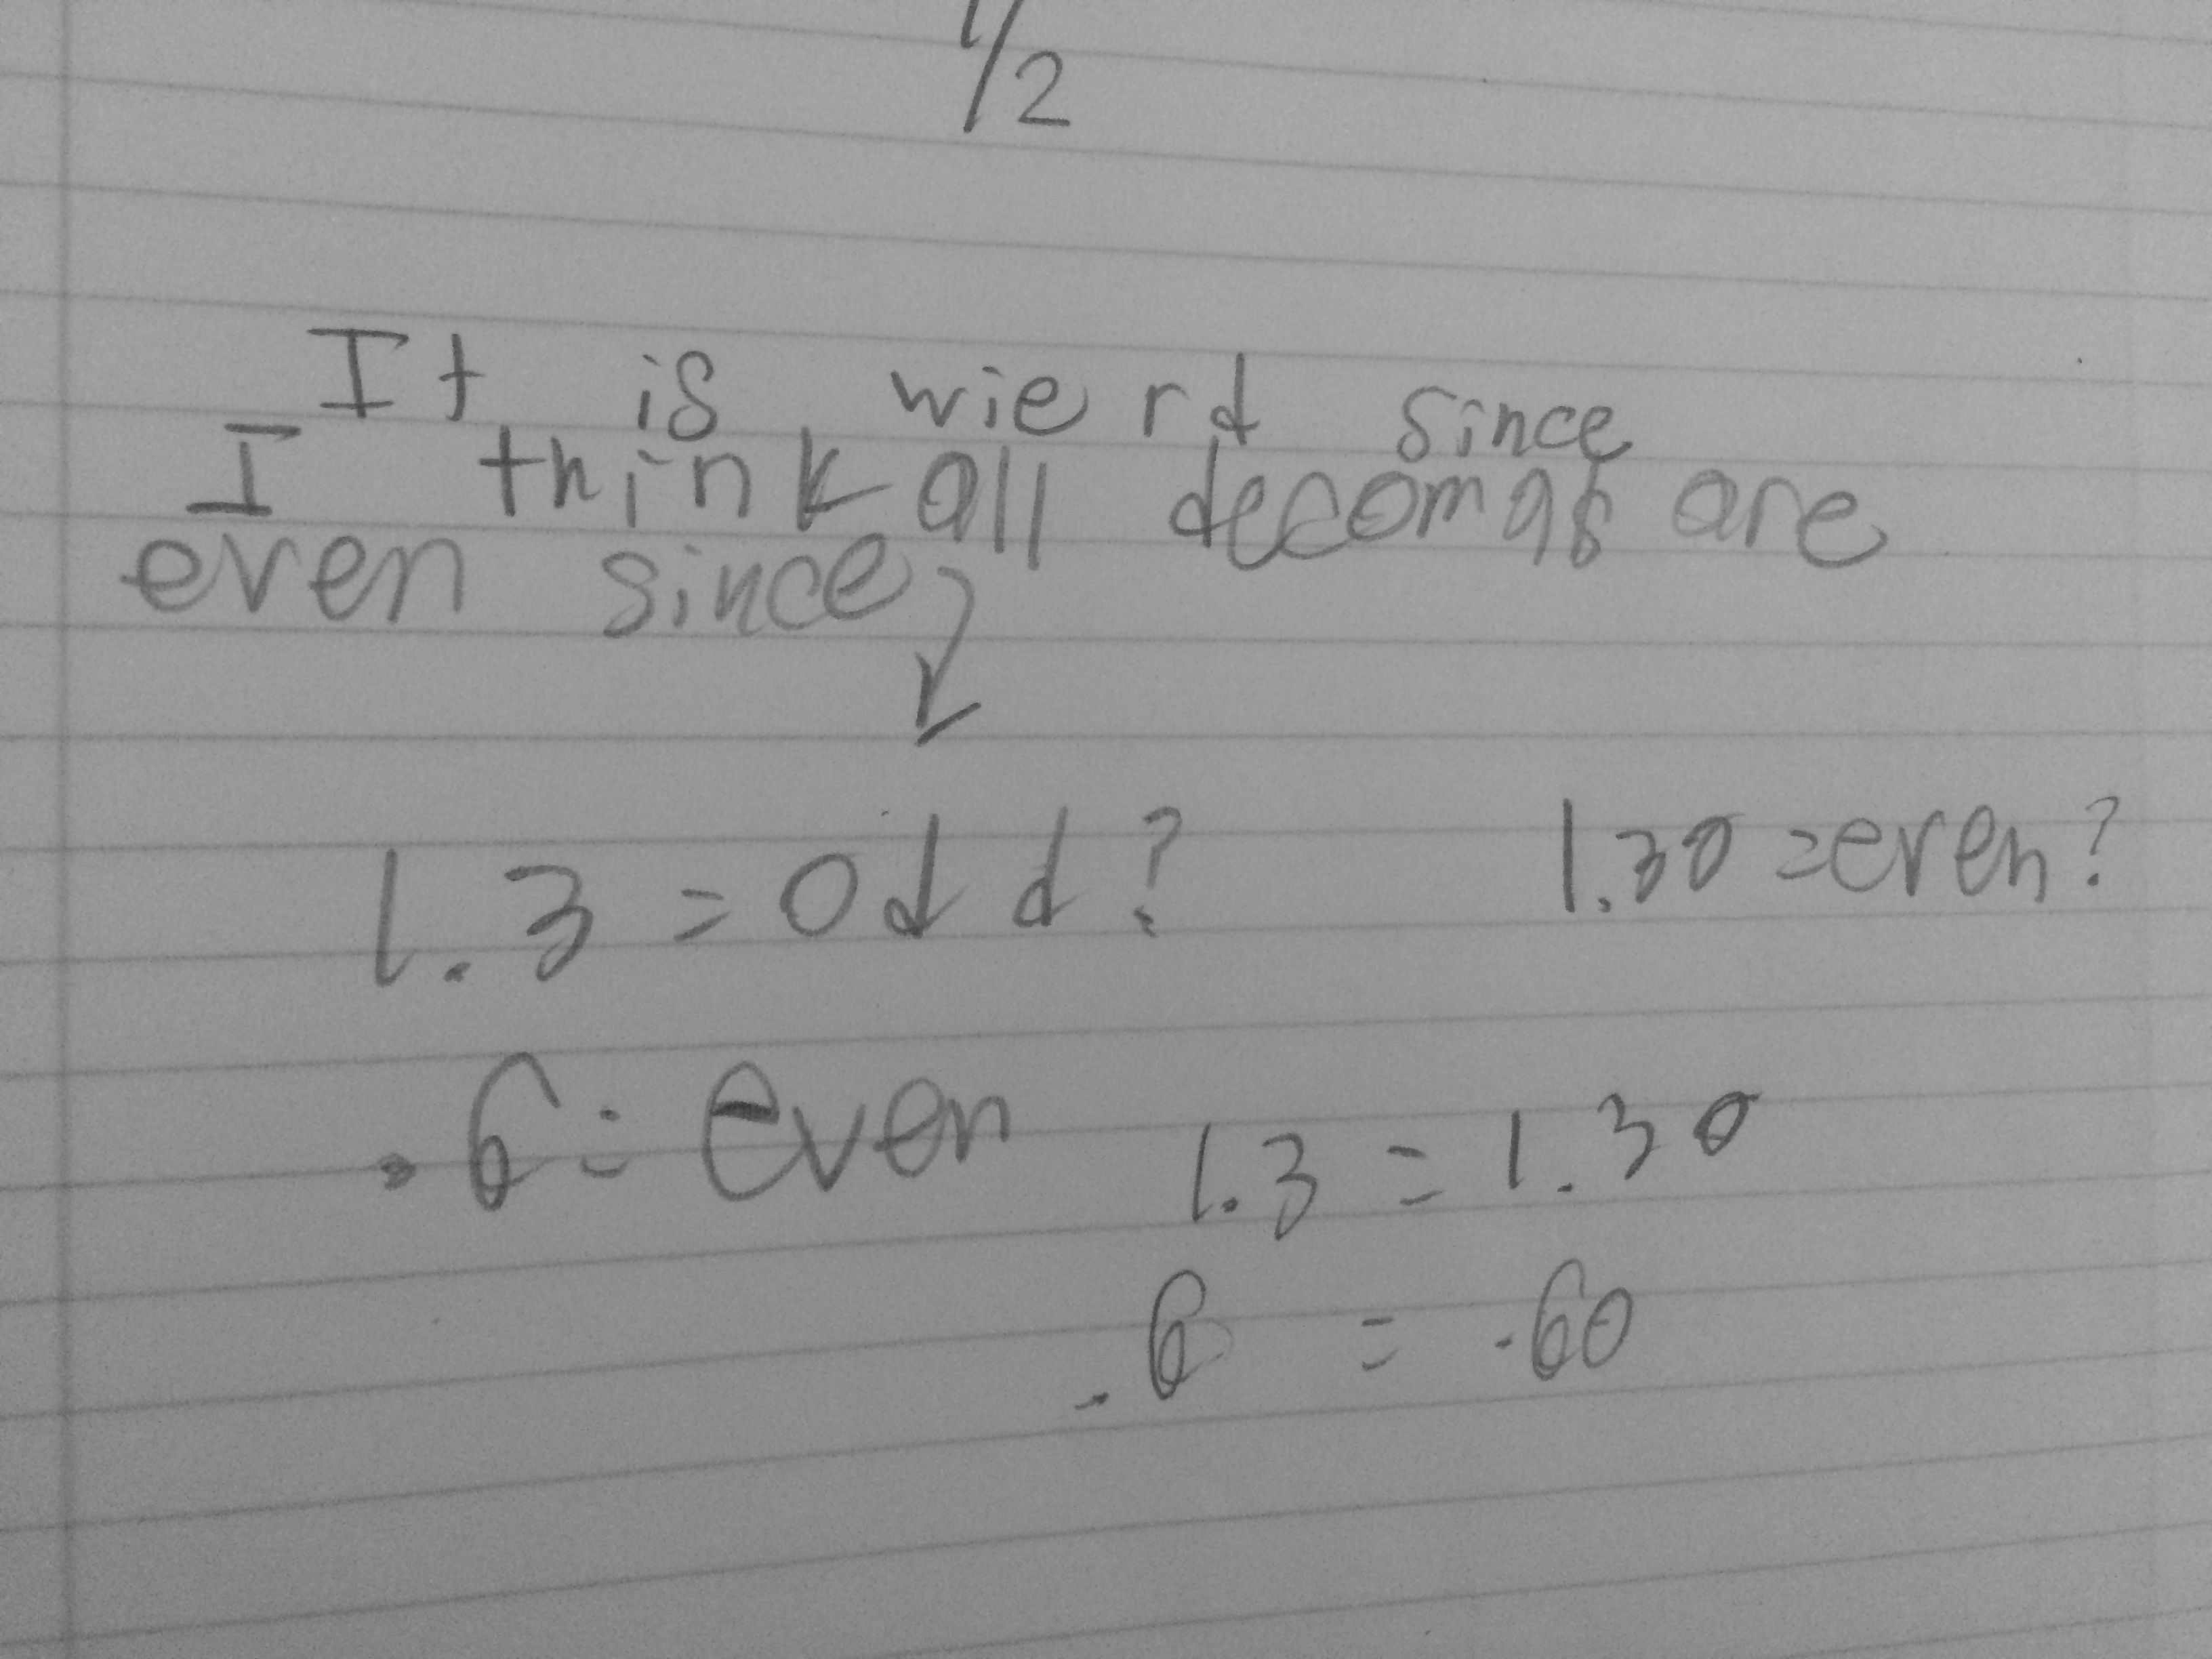 1/2
It is wierd since
I think all decomas are
even since
1.3 = odd? 1.30 = even?
.6 = even
1.3 = 1.30
.6 = .60